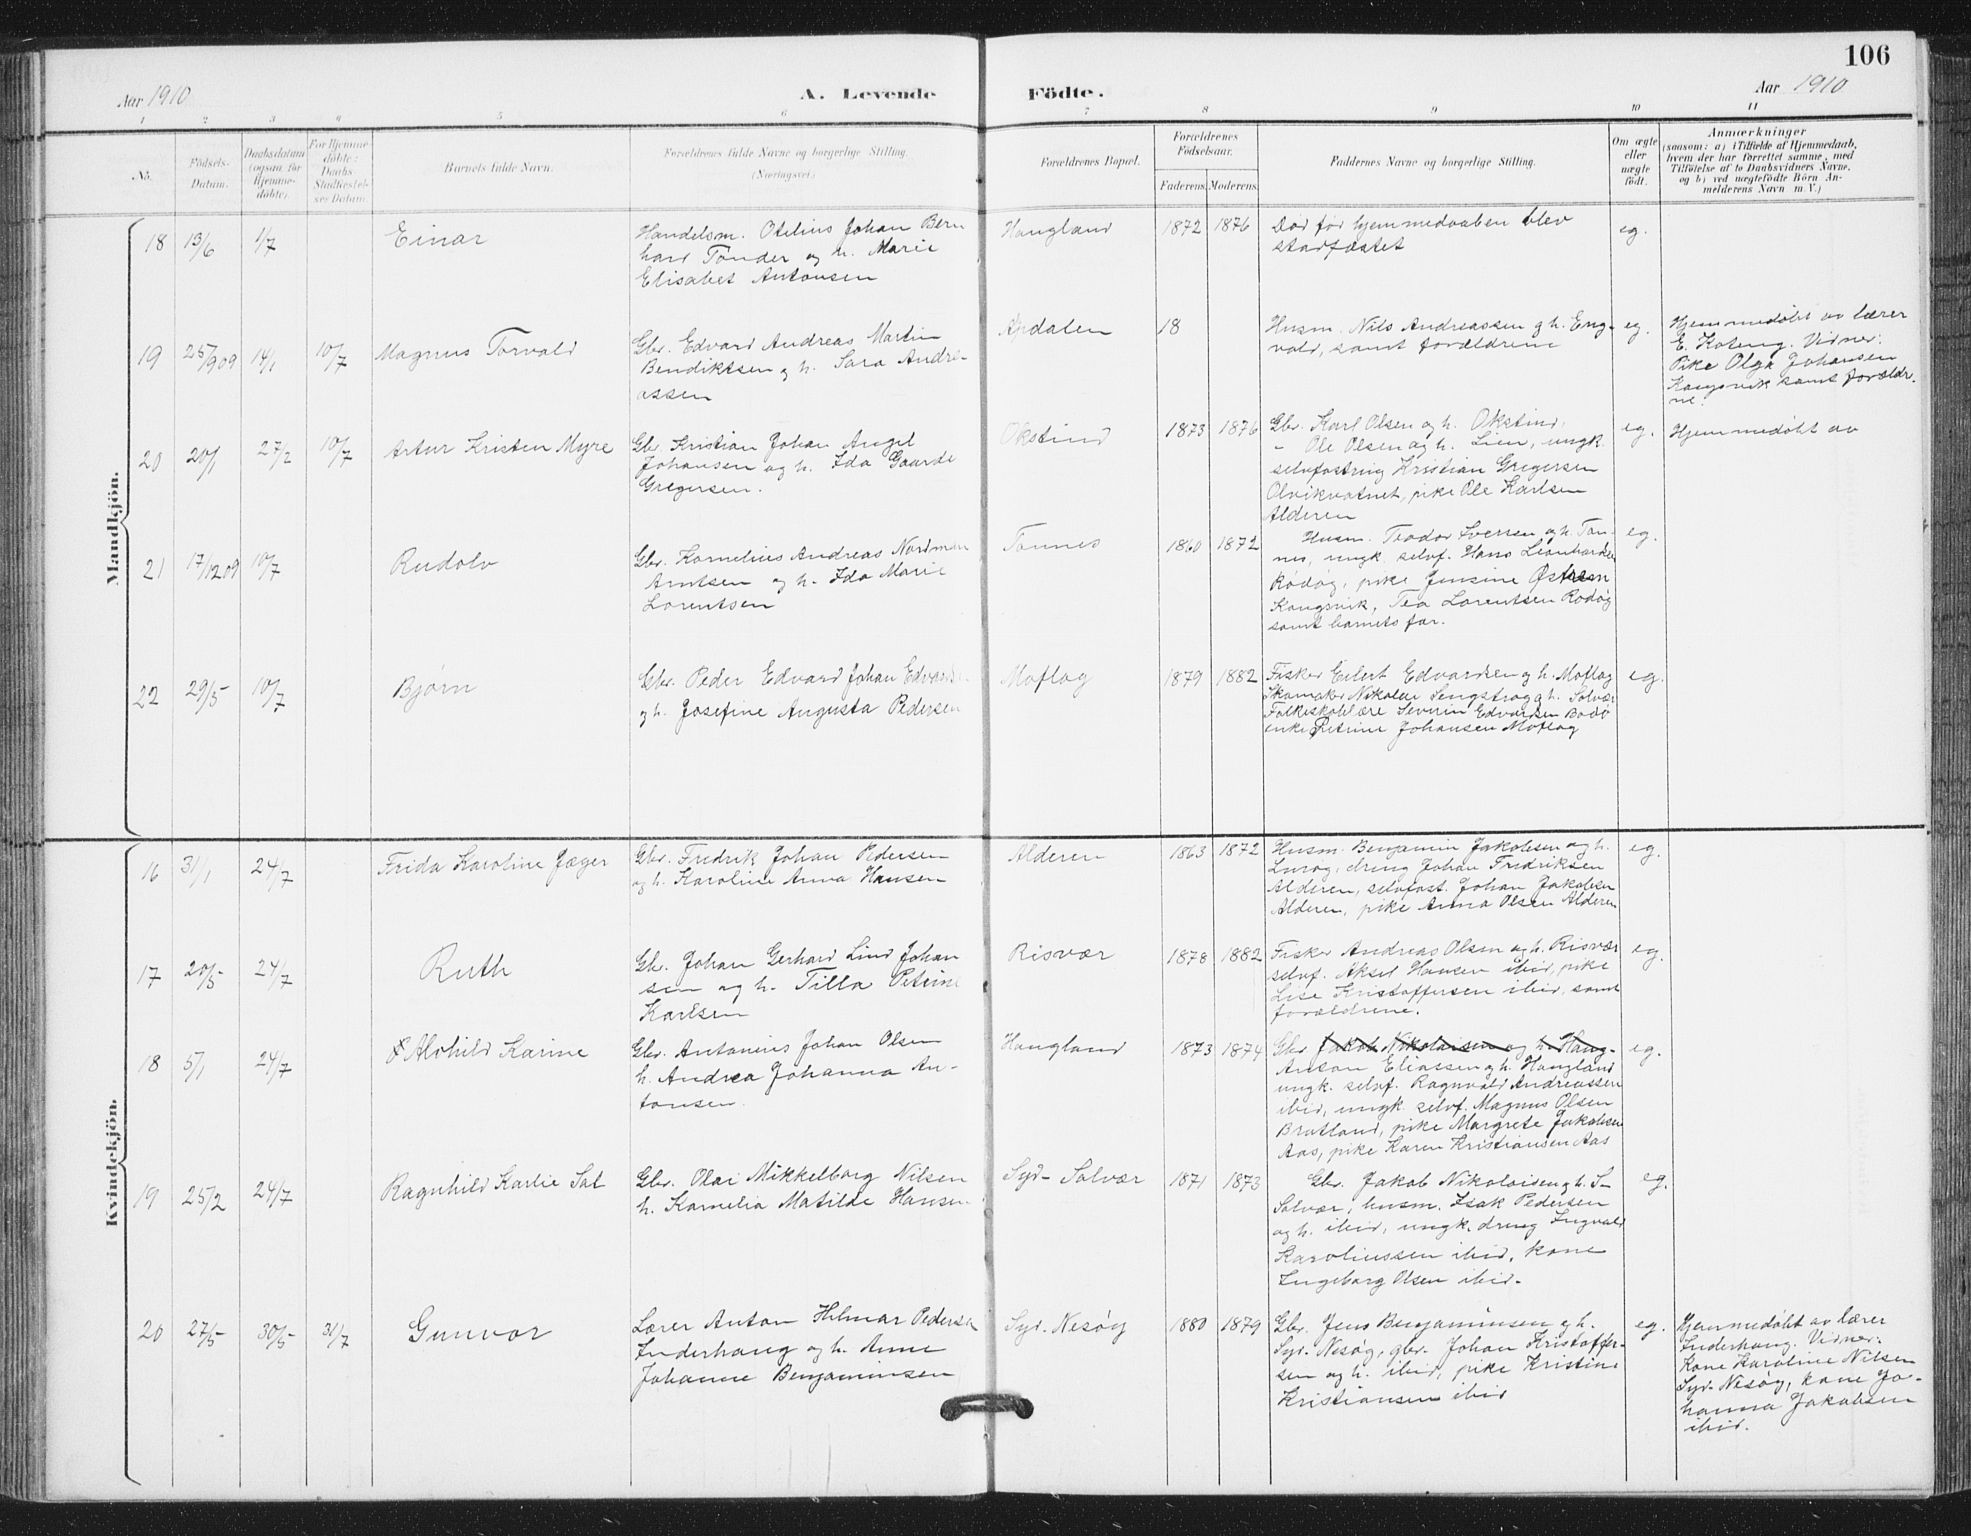 106
Aar 1910
A. Levende
Födte.
Aar 1910
1 2 3 4 5 6 7 8 9 10 11
No.
Födsels-
Datum.
Daabsdatum
(ogsaa for
Hjemme-
döbte).
For Hjemme-
döbte:
Daabs-
Stadfæstel-
ses Datum.
Barnets fulde Navn.
Forældrenes fulde Navne og borgerlige Stilling.
(Næringsvei.)
Forældrenes Bopæl.
Forældrenes
Födselsaar.
Faderens. Moderens.
Faddernes Navne og borgerlige Stilling.
Om ægte
eller
uægte
födt.
Anmærkninger
(saasom: a) i Tilfælde af Hjemmedaab,
hvem der har forrettet samme, med
Tilföielse af to Daabsvidners Navne,
og b) ved uægtefödte Börn An-
melderens Navn m. V.)
Mandkjön.
18 13/6 1/7
Einar
Handelsm. Otelius Johan Bern
hard Tønder og h. Marie
Elisabet Antonsen
Haugland
1872 1876
Død før hjemmedaaben blev
stadfæstet
eg.
19 25/9 09 14/1 10/7
Magnus Torvald
Gbr. Edvard Andreas Martin
Bendiktsen og h. Sara Andre-
assen
Apdalen
18
Husm. Nils Andreassen og h. Eng-
vold, samt forældrene
eg.
Hjemmedøbt av lærer
E. Koteng. Vidner:
Pike Olga Johansen
Kongsvik samt forældr.
ne.
20 20/1 27/2 10/7
Artur Kristen Myre
Gbr. Kristian Johan Angel
Johansen og h. Ida Gaarde
Gregersen.
Okstind
1873 1876
Gbr. Karl Olsen og h. Okstind,
- Ole Olsen og h. Lien, ungk.
selvfostring Kristian Gregersen
Olvikvatnet, pike Ole Karlsen
Alderen
eg.
Hjemmedøbt av
21 17/12 09 10/7
Rudolv
Gbr. Kornelius Andreas Nordman
Arntsen og h. Ida Marie
Lorentsen
Tonnes
1860 1872
Husm. Teodor Iversen og h. Ton-
nes, ungk. selvf. Hans Leonhardsen
Rødøy, pike Jensine
Kongsvik, Tea Lorentsen Rødøy
samt barnets far.
eg.
22 29/5 10/7
Bjørn
Gbr. Peder Edvard Johan Edvards
og h. Josefine Augusta Pedersen
Moflag
1879 1882
Fisker Eilert Edvardsen og h. Moflag
Skomaker Nikolai og h. Solvær
Folkeskolelære Severin Edvardsen Bodø
enke Petrine Johansen Moflag
eg.
Kvindekjön.
16 31/1 24/7
Frida Karoline Jæger
Gbr. Fredrik Johan Pedersen
og h. Karoline Anna Hansen
Alderen
1863 1872
Husm. Benjamin Jakobsen og h.
Lurøy, dreng Johan Fredriksen
Alderen, selvfost. Johan Jakobsen
Alderen, pike Anna Olsen Alderen
eg.
17 20/5 24/7
Ruth
Gbr. Johan Gerhard Lind Johan
sen og h. Tilla Petrine
Karlsen
Risvær
1878 1882
Fisker Andreas Olsen og h. Risvær
selvf. Aksel Hansen ibid, pike
Lise Kristoffersen ibid, samt
forældrene.
eg.
18 5/1 24/7
Alvhild Karine
Gbr. Antonius Johan Olsen
h. Andrea Johanna An-
tonsen.
Haugland
1873 1874
Gbr. Jakob Nikolaisen og h. Haug-
Anton Eliassen og h. Haugland
ungk. selvf. Ragnvald Andreassen
ibid, ungk. selvf. Magnus Olsen
Bratland, pike Margrete Jakobsen
Aas, pike Karen Kristiansen Aas
eg.
19 25/2 24/7
Ragnhild Karlie Sal
Gbr. Olai Mikkelborg Nilsen
h. Kornelia Matilde Hansen
Syd-Solvær
1871 1873
Gbr. Jakob Nikolaisen og h. S-
Solvær, husm. Isak Pedersen
og h. ibid, ungk. dreng Ingvald
Karoliussen ibid, kone
Ingeborg Olsen ibid.
eg.
20 27/5 30/5 31/7
Gunvor
Lærer Anton Hilmar Pedersen
Inderhaug og h. Anne
Johanne Benjaminsen
Syd. Nesøy
1880 1879
Gbr. Jens Benjaminsen og h.
Syd. Nesøy, gbr. Johan Kristoffer-
sen og h. ibid, pike Kristine
Kristiansen ibid
eg.
Hjemmedøbt av lærer
Inderhaug. Vidner:
Kone Karoline Nilsen
Syd-Nesøy, kone Jo-
hanna Jakobsen
ibid.